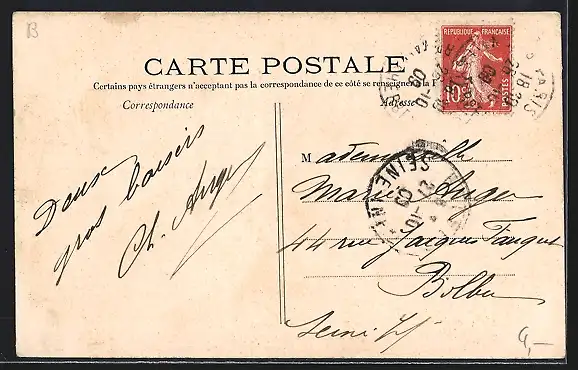 B
CARTE POSTALE
Certains pays étrangers n'acceptant pas la correspondance de ce côté se renseigner à la P
Correspondance
Adresse
RÉPUBLIQUE FRANÇAISE
10c
POSTES
PARIS
18 30
Deux
gros baisers
Ch. Auger
Mademoiselle
Auger
44 rue Jacques Fauquet
Bolbec
Seine Inf
SEINE INF
4,-